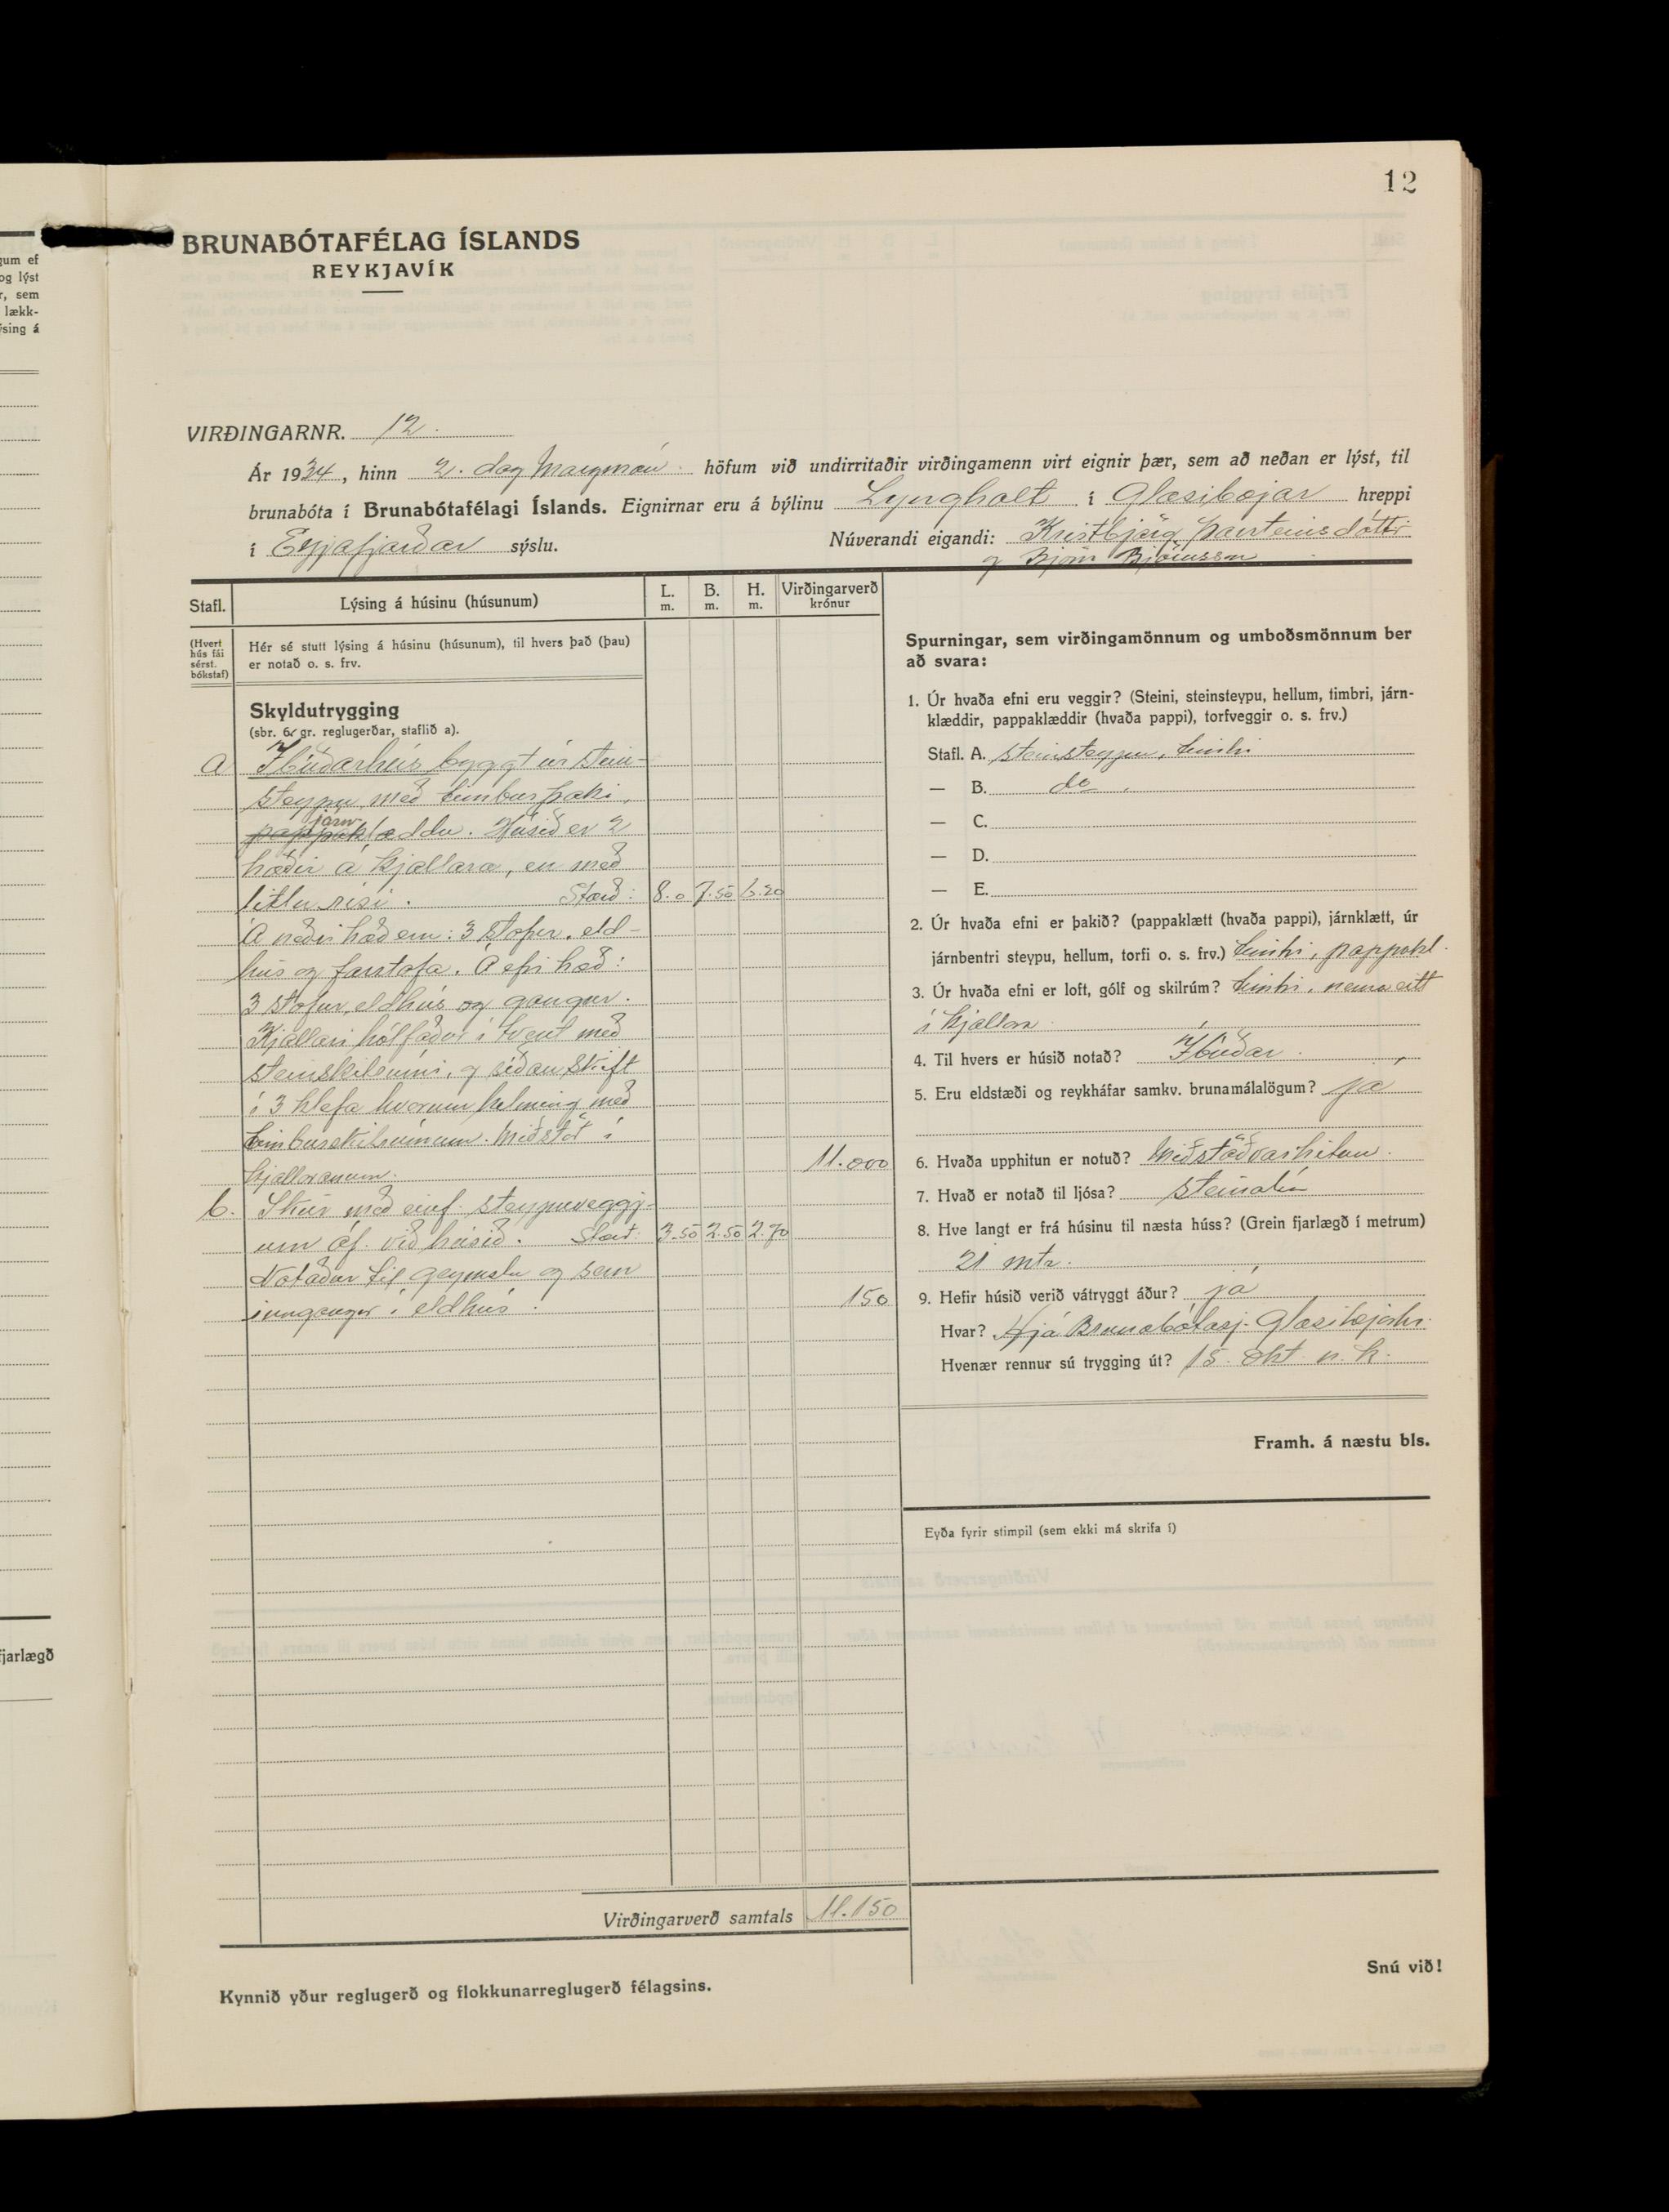 12
BRUNABÓTAFÉLAG ÍSLANDS
REYKJAVÍK
gum ef
og lýst
r, sem
lækk-
ýsing á
fjarlægð
VIRÐINGARNR. 12.
Ár 1934, hinn 2. dag Maymán. höfum við undirritaðir virðingamenn virt eignir þær, sem að neðan er lýst, til
brunabóta í Brunabótafélagi Íslands. Eignirnar eru á býlinu Lyngholt í Glæsibæjar hreppi
í Eyjafjarðar sýslu. Núverandi eigandi: Kristbjörg Þorsteinsdóttir
og Björn Björnsson
Stafl. Lýsing á húsinu (húsunum) L. m. B. m. H. m. Virðingarverð krónur
(Hvert hús fái sérst. bókstaf)
Hér sé stutt lýsing á húsinu (húsunum), til hvers það (þau)
er notað o. s. frv.
Skyldutrygging
(sbr. 6. gr. reglugerðar, staflið a).
a Íbúðarhús byggt úr stein-
steypu með timburþaki,
járn-
pappaklæddu. Húsið er 2
hæðir á kjallara, en með
litlu risi. Stærð: 8.0 7.50 6.20
Á neðri hæð eru: 3 stofur, eld-
hús og forstofa. Á efri hæð:
3 stofur, eldhús og gangur.
Kjallari hólfaður í tvent með
steinskilrúmi, og síðan skift
í 3 klefa hvorum helming með
timburskilrúmum. Miðstöð í
kjallaranum. 11.000
b. Skúr með einf. steypuveggj-
um áf. við húsið. Stærð: 3.50 2.50 2.70
Notaður til geymslu og sem
inngangur í eldhús. 150
Virðingarverð samtals 11.150
Kynnið yður reglugerð og flokkunarreglugerð félagsins.
Spurningar, sem virðingamönnum og umboðsmönnum ber
að svara:
1. Úr hvaða efni eru veggir? (Steini, steinsteypu, hellum, timbri, járn-
klæddir, pappaklæddir (hvaða pappi), torfveggir o. s. frv.)
Stafl. A. steinsteypu, timbri
— B. do.
— C.
— D.
— E.
2. Úr hvaða efni er þakið? (pappaklætt (hvaða pappi), járnklætt, úr
járnbentri steypu, hellum, torfi o. s. frv.) timbri, pappakl.
3. Úr hvaða efni er loft, gólf og skilrúm? timbri, nema eitt
í kjallara
4. Til hvers er húsið notað? Íbúðar.
5. Eru eldstæði og reykháfar samkv. brunamálalögum? já
6. Hvaða upphitun er notuð? Miðstöðvarhitun.
7. Hvað er notað til ljósa? steinolía
8. Hve langt er frá húsinu til næsta húss? (Grein fjarlægð í metrum)
21 mtr.
9. Hefir húsið verið vátryggt áður? já
Hvar? Hjá Brunabótasj. Glæsibæjarhr.
Hvenær rennur sú trygging út? 15. okt. n. k.
Framh. á næstu bls.
Eyða fyrir stimpil (sem ekki má skrifa í)
Snú við!